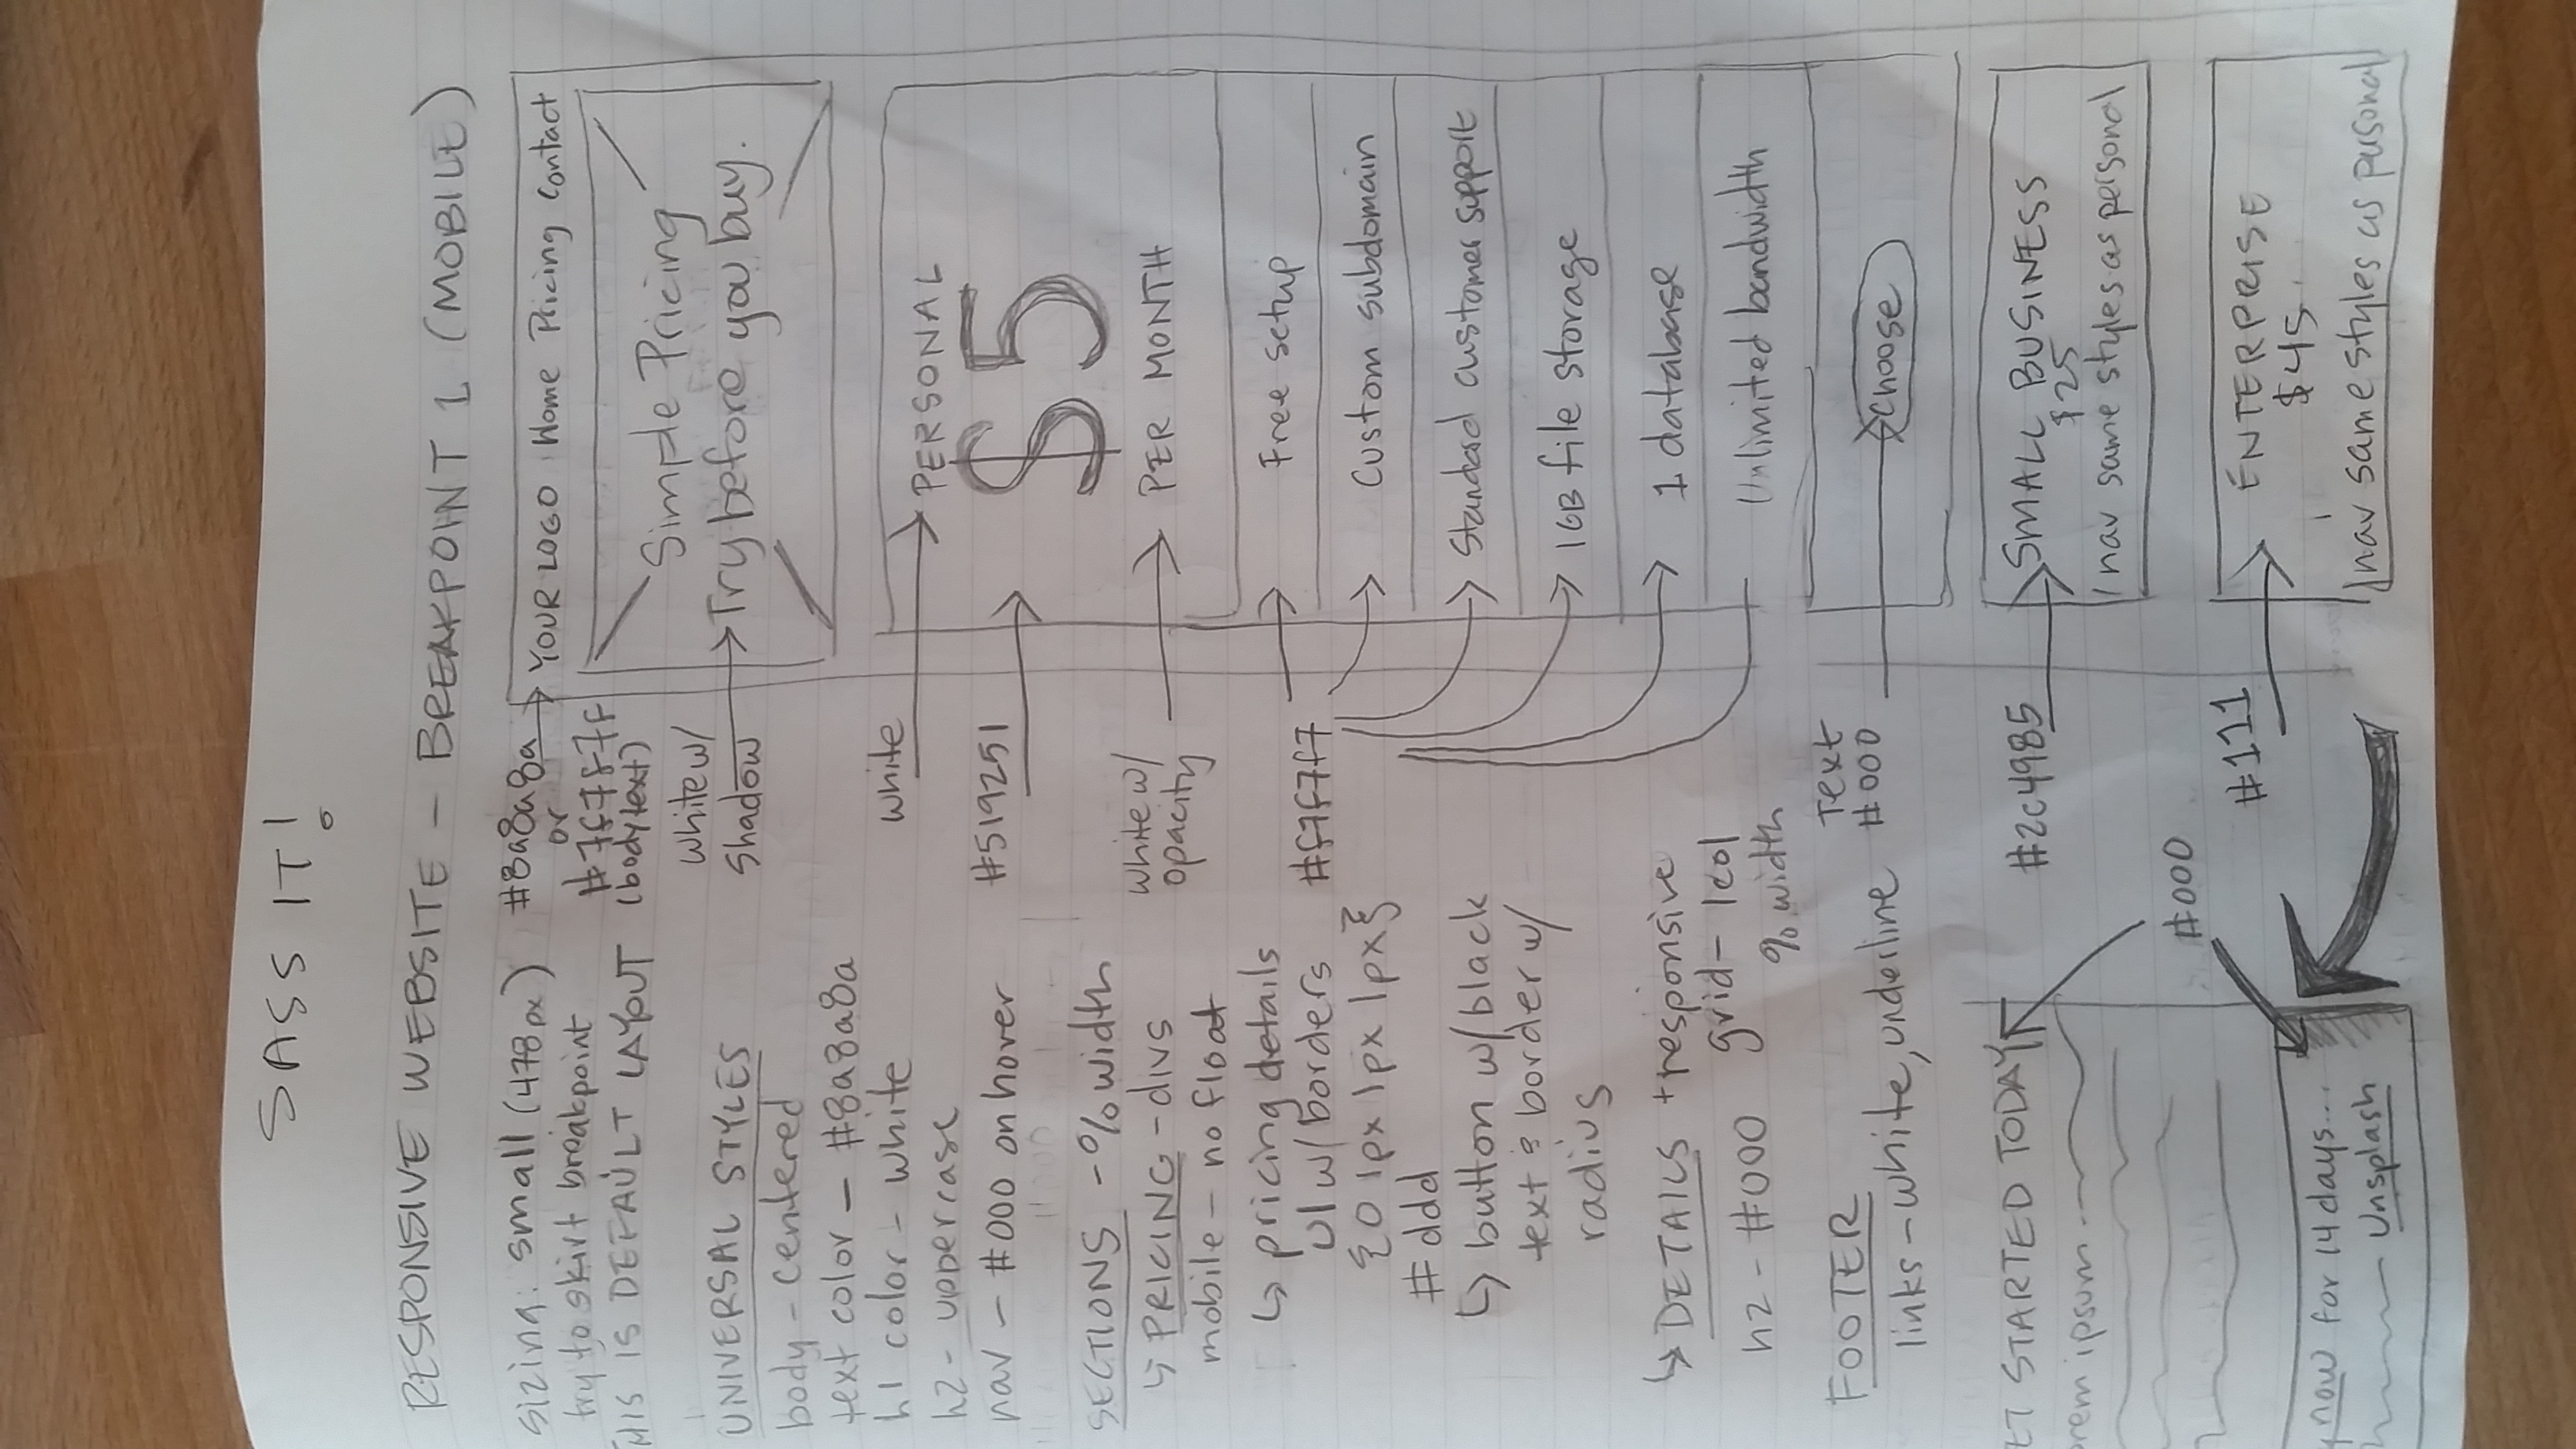 SASS IT!
RESPONSIVE WEBSITE - BREAKPOINT 1 (MOBILE)
sizing: small (478px)
try to skirt breakpoint
THIS IS DEFAULT LAYOUT
UNIVERSAL STYLES
body - centered
text color - #8a8a8a
h1 color - white
h2 - uppercase
nav - #000 on hover
SECTIONS - % width
↳ PRICING - divs
mobile - no float
↳ pricing details
ul w/ borders
{0 1px 1px 1px}
#ddd
↳ button w/ black
text & border w/
radius
↳ DETAILS + responsive
grid - 1col
% width
h2 - #000
FOOTER
links - white, underline
ET STARTED TODAY
orem ipsum
#000
now for 14 days...
Unsplash
#8a8a8a
or
#7f7f7f
(body text)
white w/
shadow
white
#519251
white w/
opacity
#f7f7f7
Text
#000
#2c4985
#111
YOUR LOGO Home Pricing Contact
Simple Pricing
Try before you buy.
PERSONAL
$5
PER MONTH
Free setup
Custom subdomain
Standard customer support
1GB file storage
1 database
Unlimited bandwidth
Choose
SMALL BUSINESS
$25
nav same styles as personal
ENTERPRISE
$45
nav same styles as personal